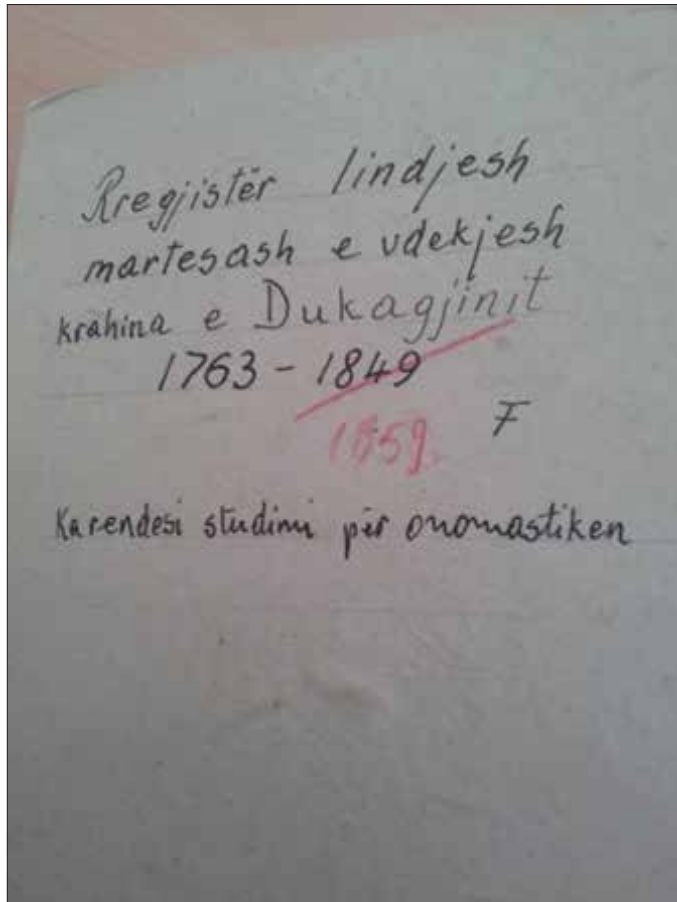 Rregjistër lindjesh
martesash e vdekjesh
krahina e Dukagjinit
1763 - 1849
1859.
F
Ka rendesi studimi për onomastiken